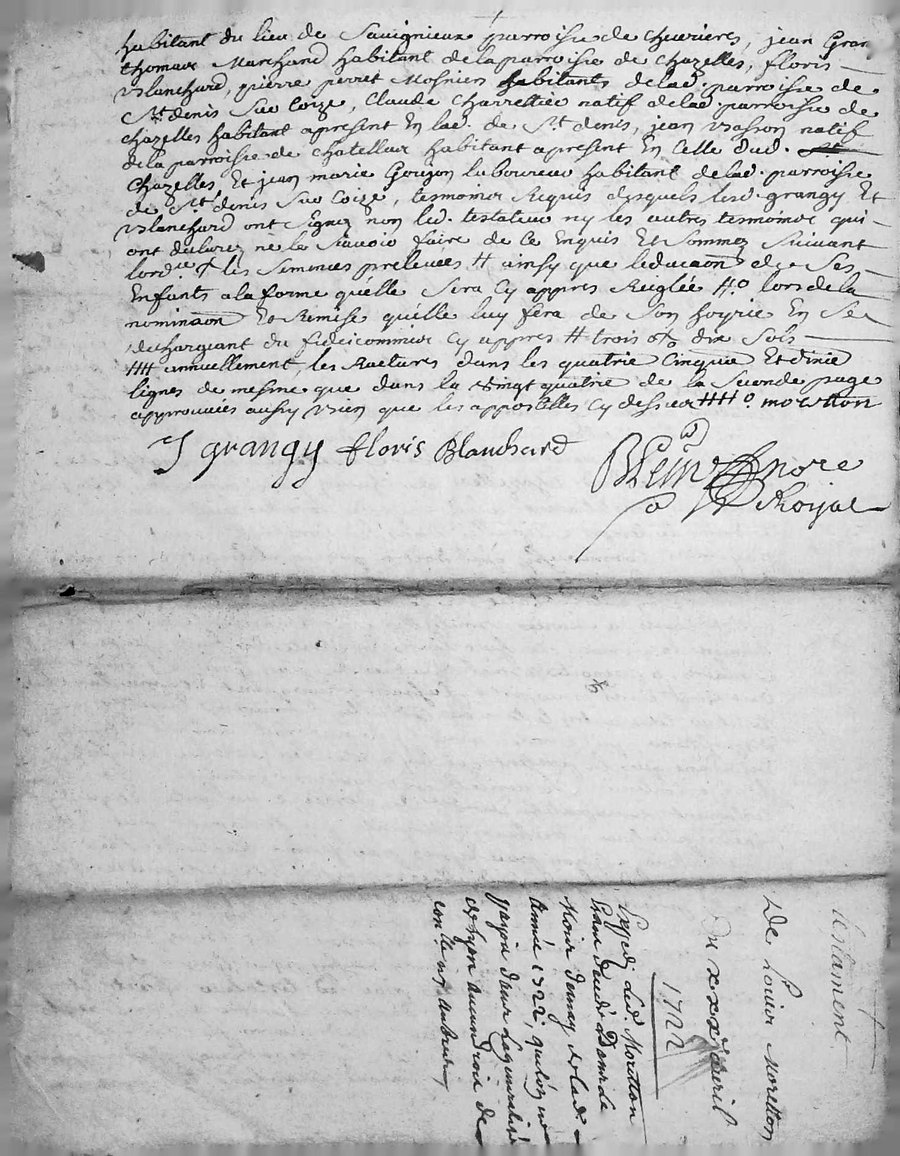 habitant du lieu de Savignieux parroisse de cheurieres, jean Gran
thomas Marchand habitant de la parroisse de chazelles, floris
blanchard, pierre perret Mosnier habitants de lad. parroisse de
St. denis sur Coize, Claude Charretier natif de lad. parroisse de
chazelles habitant apresent En lad. de St. denis, jean natif
de la parroisse de chatellux habitant apresent En Celle dud.
Chazelles, Et jean marie Goujon laboureur habitant de lad. parroisse
de St. denis sur Coize, tesmoins Requis desquels lesd. grangy Et
blanchard ont signez non led. testateur ny les autres tesmoins qui
ont declarez ne le scavoir faire de ce Enquis Et Sommez Suivant
lordce les Sommes prelevees # ainsy que leducaon de Ses
Enfants a la forme quelle Sera Cy appres Reuglée #o lors de la
nominaon Et Remise quelle luy fera de Son hoyrie En Se
dechargeant du fideicommis Cy appres # trois dix Sols
## annuellement, les Ratures dans les quatrie Cinquie Et dixie
lignes de mesme que dans la vingt quatre de la Seconde page
approuvées aussy bien que les appostilles Cy dessus ##o moretton
J grangy floris Blanchard
nore
Royal
testament
De Louis Moretton
Du xxx avril
1722
led. Moretton

de lad.
année 1722, 

de Lyon aucun droit de